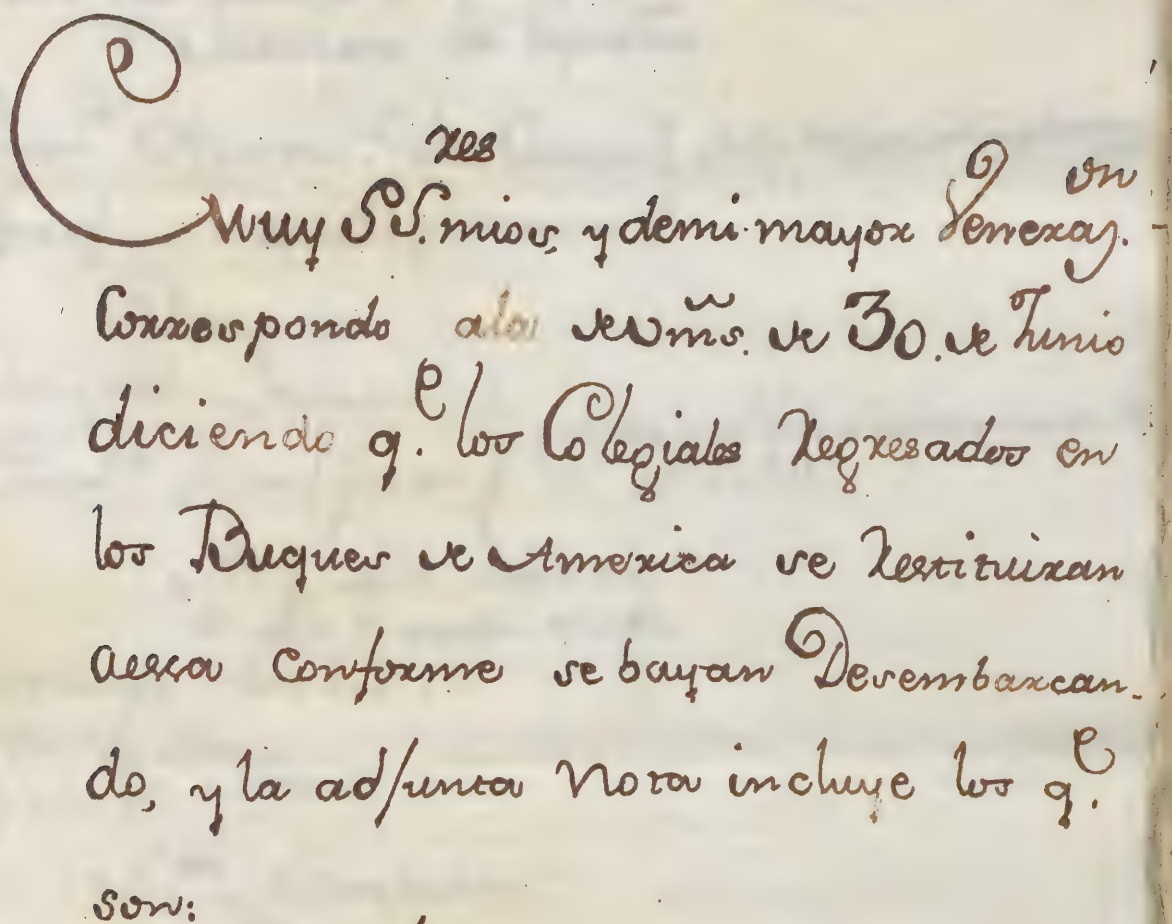 Muy SS.res mios, y demi mayor Veneraz.on
Correspondo ala devms. de 30. de Junio
diciendo q.e los Colegiales Regresados en
los Buques de America se Restituiran
aessa conforme se bayan Desembarcan-
do, y la adjunta Nota incluye los q.e
son: